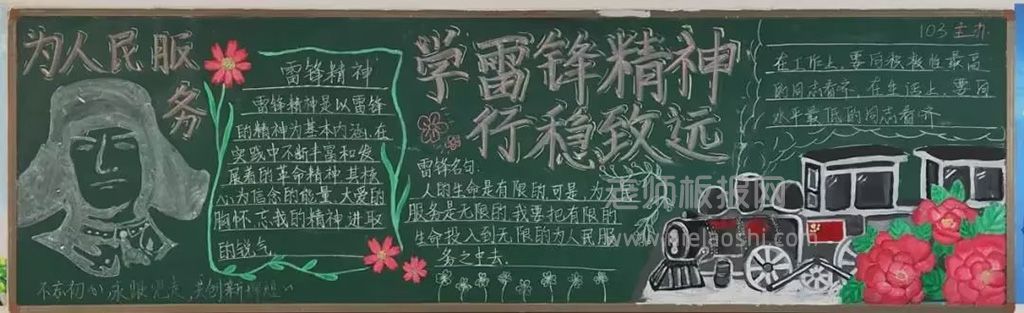 为人民服
务
雷锋精神
雷锋精神是以雷锋
的精神为基本内涵,在
实践中不断丰富和发
展着的革命精神,其核
心为信念的能量、大爱的
胸怀、忘我的精神、进取
的锐气
不忘初心 永跟党走 共创新
学雷锋精神
行稳致远
雷锋名句:
人的生命是有限的,可是,为人民
服务是无限的,我要把有限的
生命投入到无限的为人民服
务之中去。
103 主办
在工作上,要向积极性最高
的同志看齐,在生活上,要向
水平最低的同志看齐
老师板报网
www.melaoshi.com